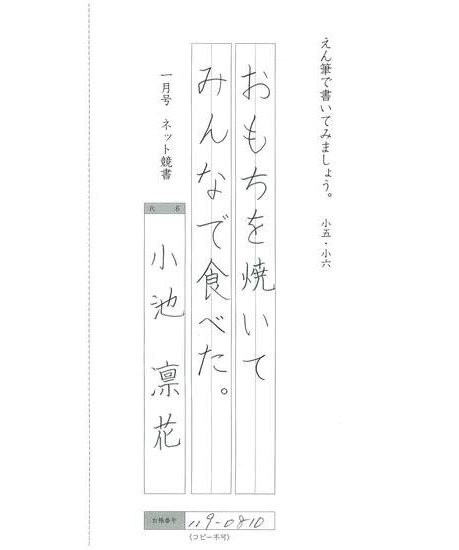 えん筆で書いてみましょう。 小五・小六
おもちを焼いて
みんなで食べた。
一月号 ネット競書
氏名
小池 凛花
台帳番号 119-0810
(コピー不可)